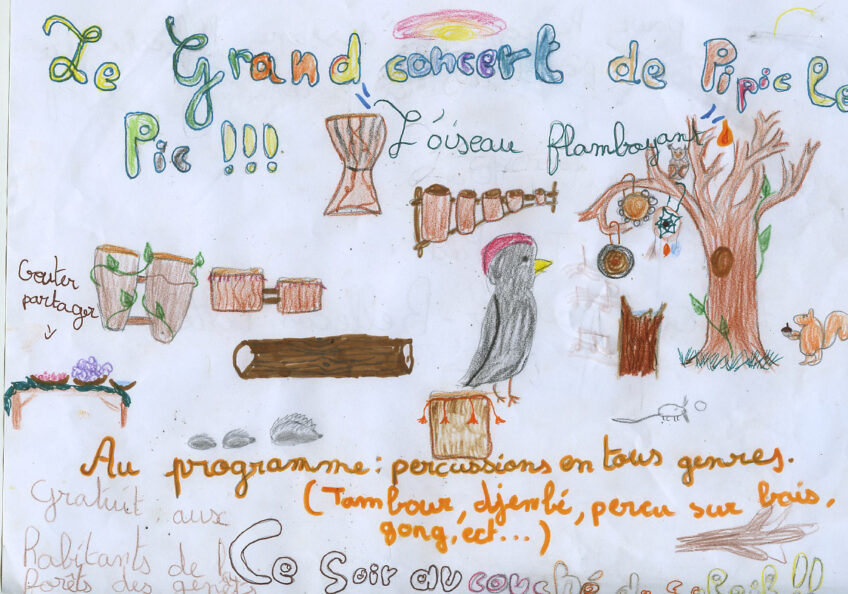 Le Grand concert de Pipic le
Pic !!!
L'oiseau flamboyant
Gouter
partager
Au programme : percussions en tous genres.
(Tambour, djembé, percu sur bois,
gong, ect...)
Gratuit aux
Habitants de la
forêts des genêts
Ce Soir au couché du soleil !!